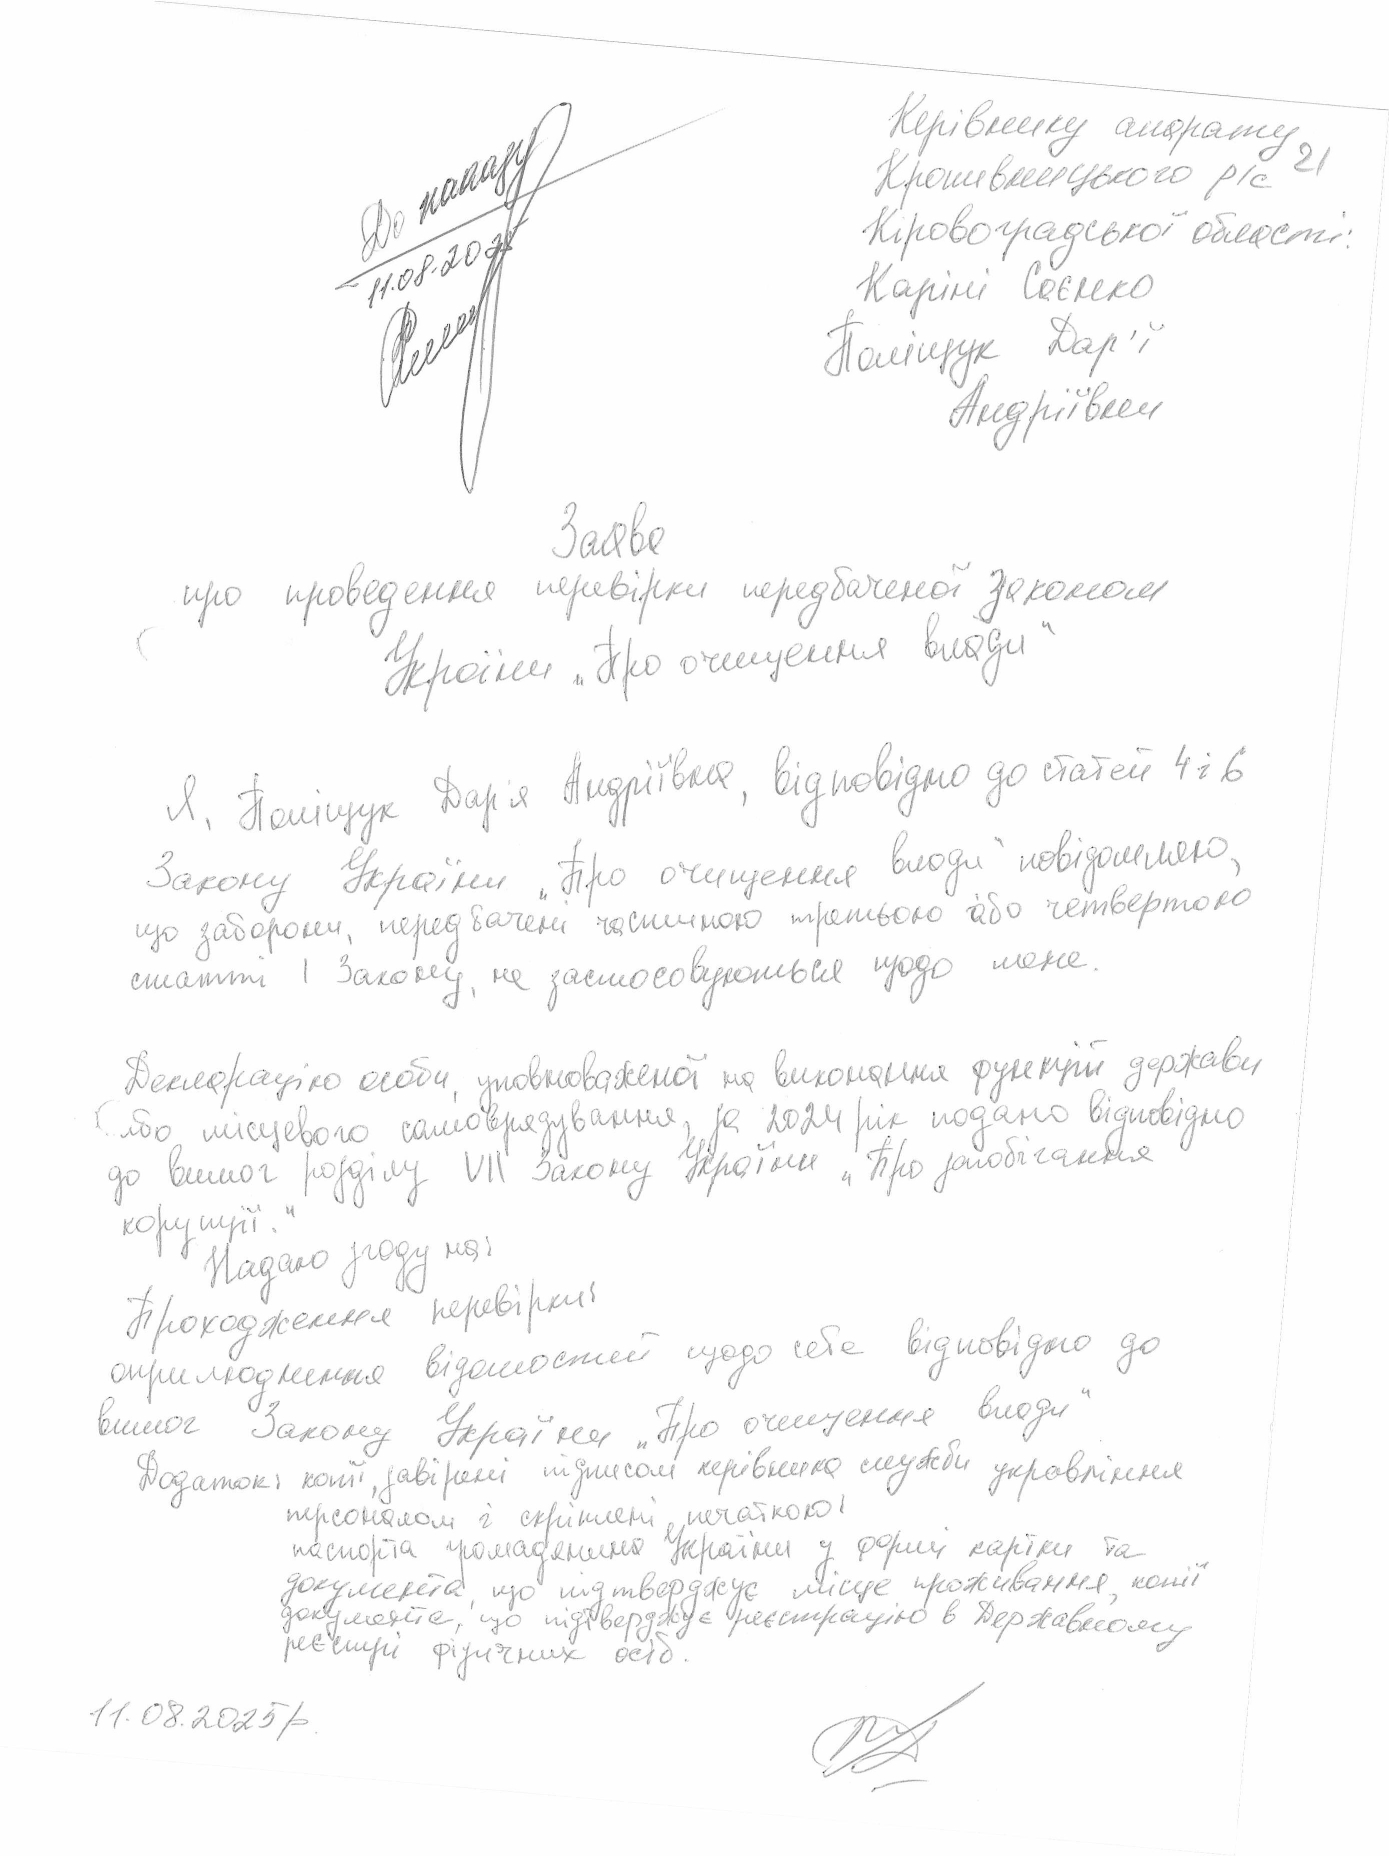 До наказу
11.08.2025
Керівнику апарату
Кропивницького р/с
21
Кіровоградської області:
Каріні Саєнко
Поліщук Дар'ї
Андріївни
Заява
про проведення перевірки передбаченої Законом
України „Про очищення влади“
Я, Поліщук Дар'я Андріївна, відповідно до статей 4 і 6
Закону України „Про очищення влади“ повідомляю,
що заборони, передбачені частиною третьою або четвертою
статті 1 Закону, не застосовуються щодо мене.
Декларацію особи, уповноваженої на виконання функцій держави
або місцевого самоврядування, за 2024 рік подано відповідно
до вимог розділу VII Закону України „Про запобігання
корупції.“
Надаю згоду на:
Проходження перевірки:
оприлюднення відомостей щодо себе відповідно до
вимог Закону України „Про очищення влади“
Додаток: копії, завірені підписом керівника служби управління
персоналом і скріплені печаткою:
паспорта громадянина України у формі картки та
документа, що підтверджує місце проживання, копії
документа, що підтверджує реєстрацію в Державному
реєстрі фізичних осіб.
11.08.2025р.